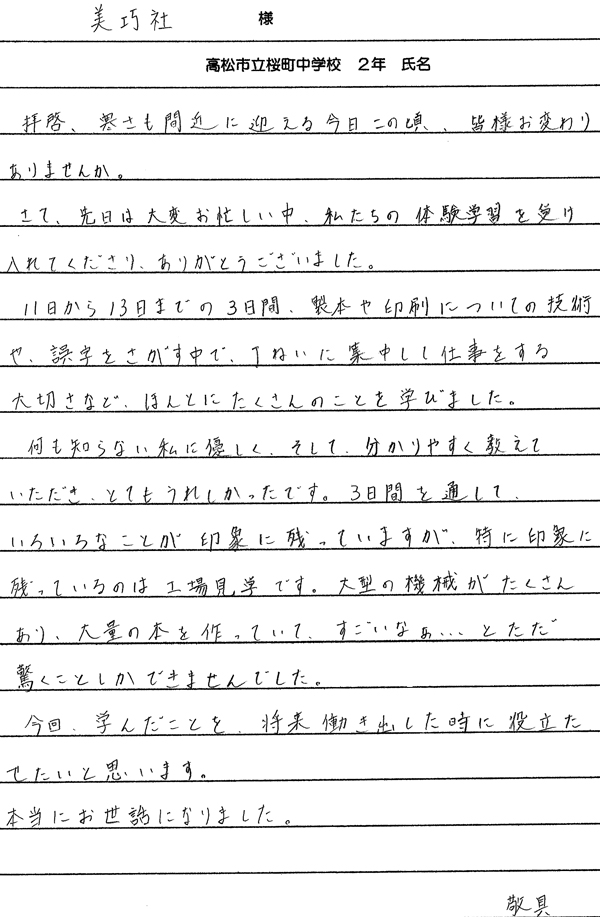 美巧社 様
高松市立桜町中学校 2年 氏名
拝啓、寒さも間近に迎える今日この頃、皆様お変わり
ありませんか。
さて、先日は大変お忙しい中、私たちの体験学習を受け
入れてくださり、ありがとうございました。
11日から13日までの3日間、製本や印刷についての技術
や、誤字をさがす中で、丁ねいに集中しし仕事をする
大切さなど、ほんとにたくさんのことを学びました。
何も知らない私に優しく、そして、分かりやすく教えて
いただき、とてもうれしかったです。3日間を通して、
いろいろなことが印象に残っていますが、特に印象に
残っているのは工場見学です。大型の機械がたくさん
あり、大量の本を作っていて、すごいなぁ…とただ
驚くことしかできませんでした。
今回、学んだことを、将来働き出した時に役立た
せたいと思います。
本当にお世話になりました。
敬具